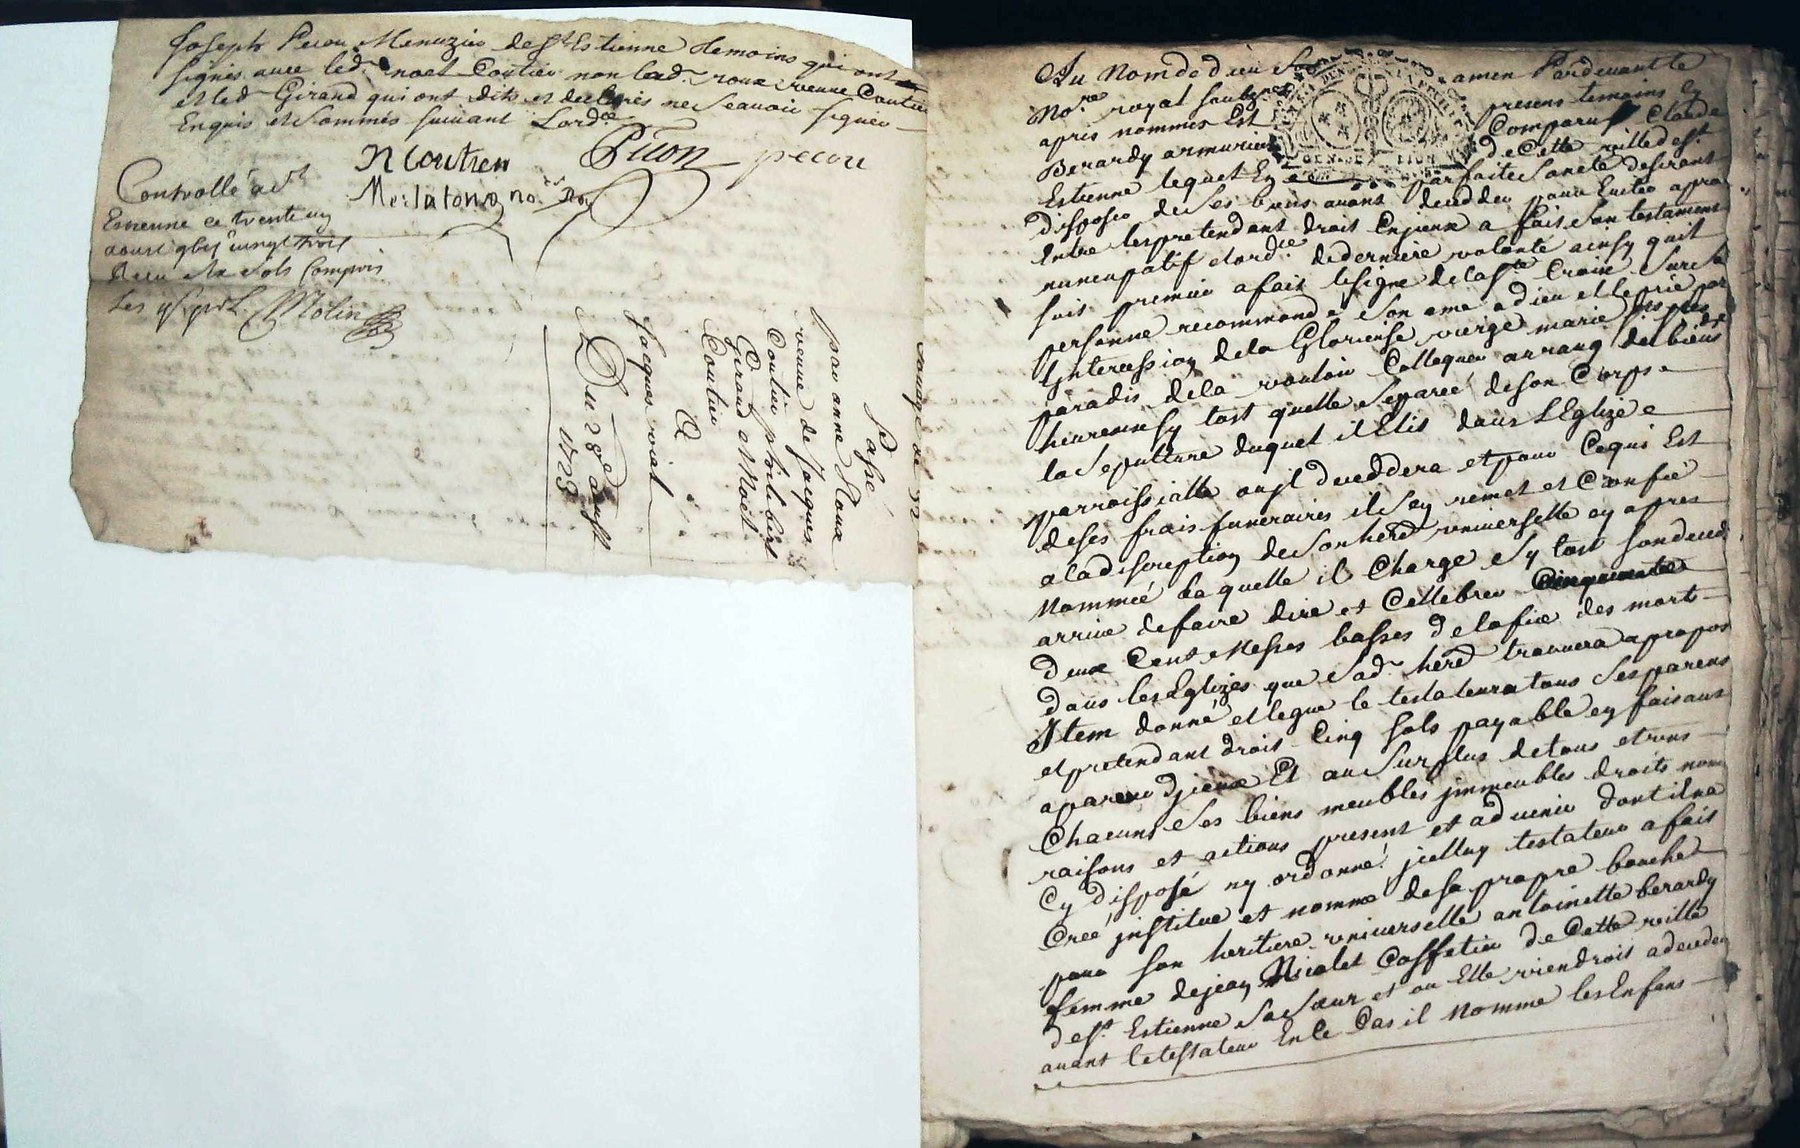 Joseph Picon Menuzier de St Estienne temoins qui ont
signés avec led. noel Coutier non lad. roux veuve Coutier
et led. Girand qui ont dits et declarés ne scavoir signer
Enquis et sommés suivant Lordce
N Coutier Picon pecou
Controllé a St
Estienne ce trente un
aoust vingt trois
Receu six sols compris
les Molin
Passé
par anne Roux
veuve de Jacques
Coutier philibert
Girand et Noël
Coutier
A
Jacques vial
Du 28e aoust
1723
Au Nom de dieu amen Pardevant le
Nore royal soubsné presens temoins cy
apres nommés Est Comparu Claude
Berardy armurier de Cette ville de St
GEN DE LION
Estienne lequel En parfaite santé desirant
disposer de ses biens avant deceder pour Eviter apro
Entre les pretendant droit Enjeux a fait son testament
nuncupatif et ordre de derniere volonté ainsy quil
suit premier a fait le signe de la Ste Croix sur sa
personne recommandé son ame a dieu et le prie par
Lintercession de la Glorieuse vierge marie
paradis de la vouloir Collequer au rang des biens
heureux sy tost quelle separée de son Corps
la sepulture duquel il Elit dans LEglize
parroissialle ou jl deceddera et pour Ce qui Est
de ses frais funeraires il sen remet et Confie
a la discreption de son hered universelle cy apres
Nommée laquelle il Charge sy tost son deced
arrivé de faire dire et Cellebrer
deux Cent Messes basses de lofice des morts
dans les Eglizes que sad. hered trouvera a propos
Item donné et legue le testateur a tous ses parens
et pretendant droit Cinq sols payable en faisant
aparoir djceux Et au surplus de tous et uns
Chacuns ses biens meubles jmmeubles droits nom
raisons et actions present et advenir dont il na
Cy disposé ny ordonné jcelluy testateur a fait
Créé jnstitue et nomme de sa propre bouche
pour son heritiere universelle antoinette berardy
femme de jean Nicolet Caffetier de Cette ville
de St Estienne sa sœur et ou Elle viendroit a deceder
avant le testateur En Ce Cas il Nomme les Enfans